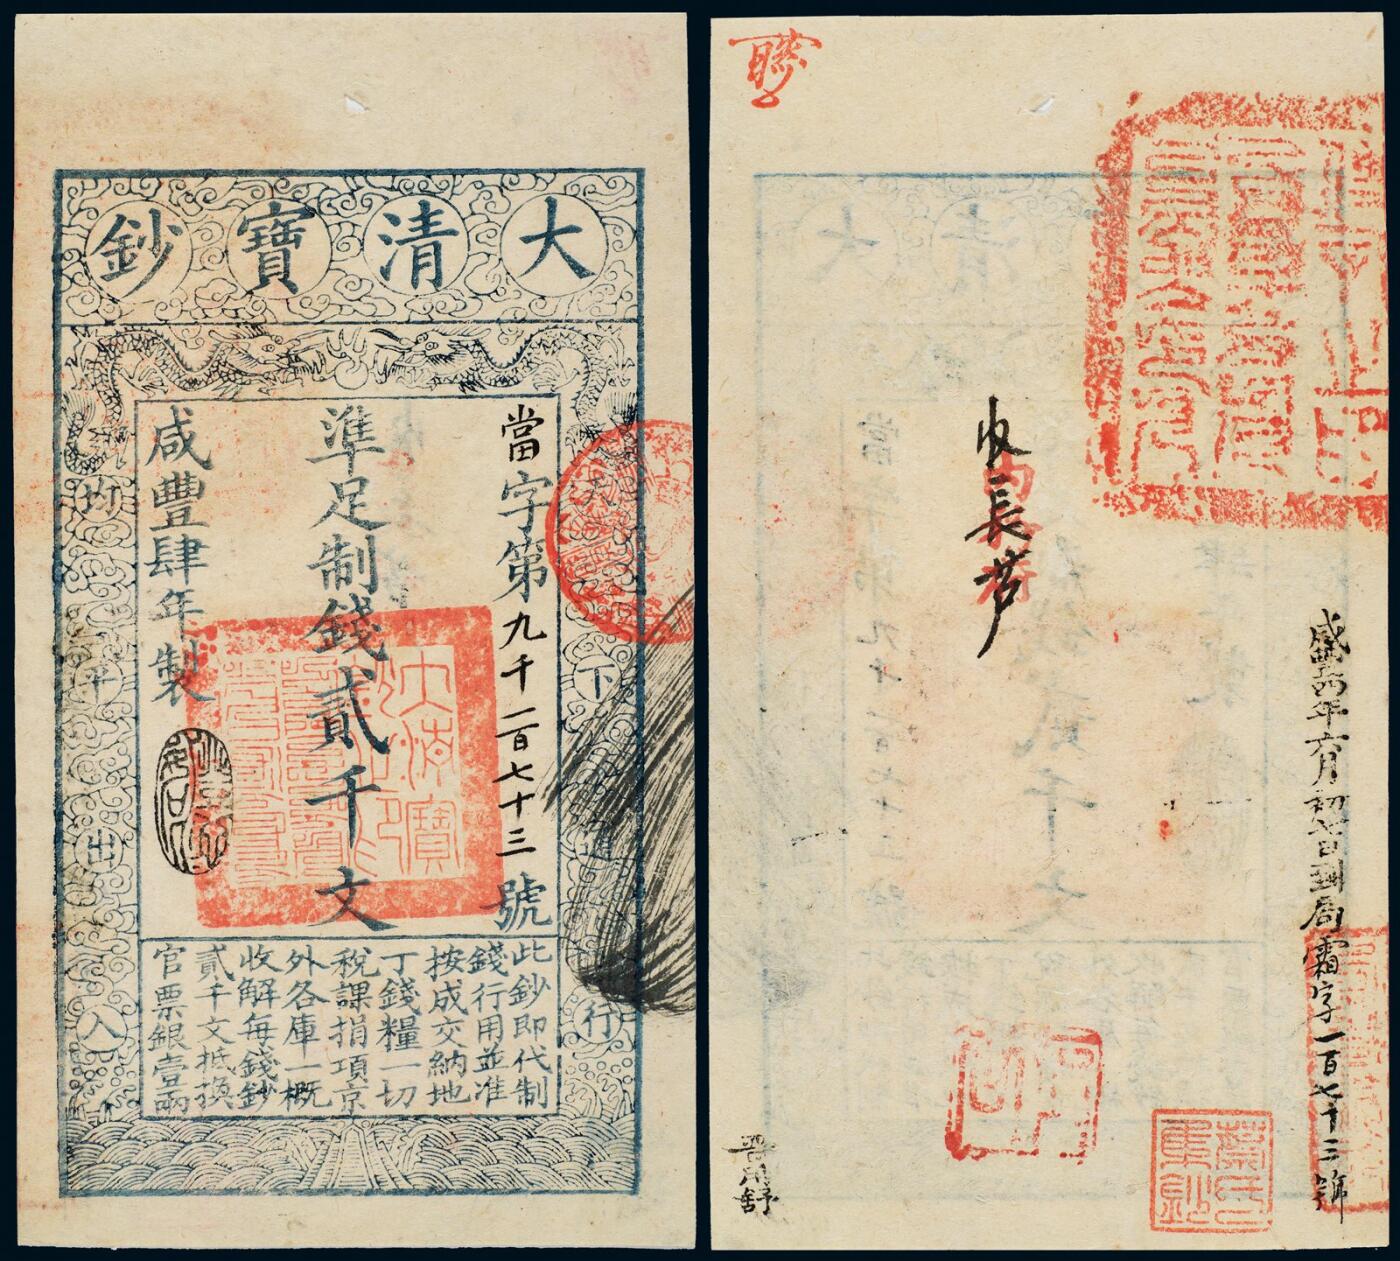 大清寶鈔
當字第九千一百七十三號
準足制錢貳千文
咸豐肆年製
天下通行
均平出入
此鈔即代制
錢行用並准
按成交納地
丁錢糧一切
稅課捐項京
外各庫一概
收解每錢鈔
貳千文抵換
官票銀壹兩
收長蘆
咸豐四年六月初七日到局霜字一百七十三號